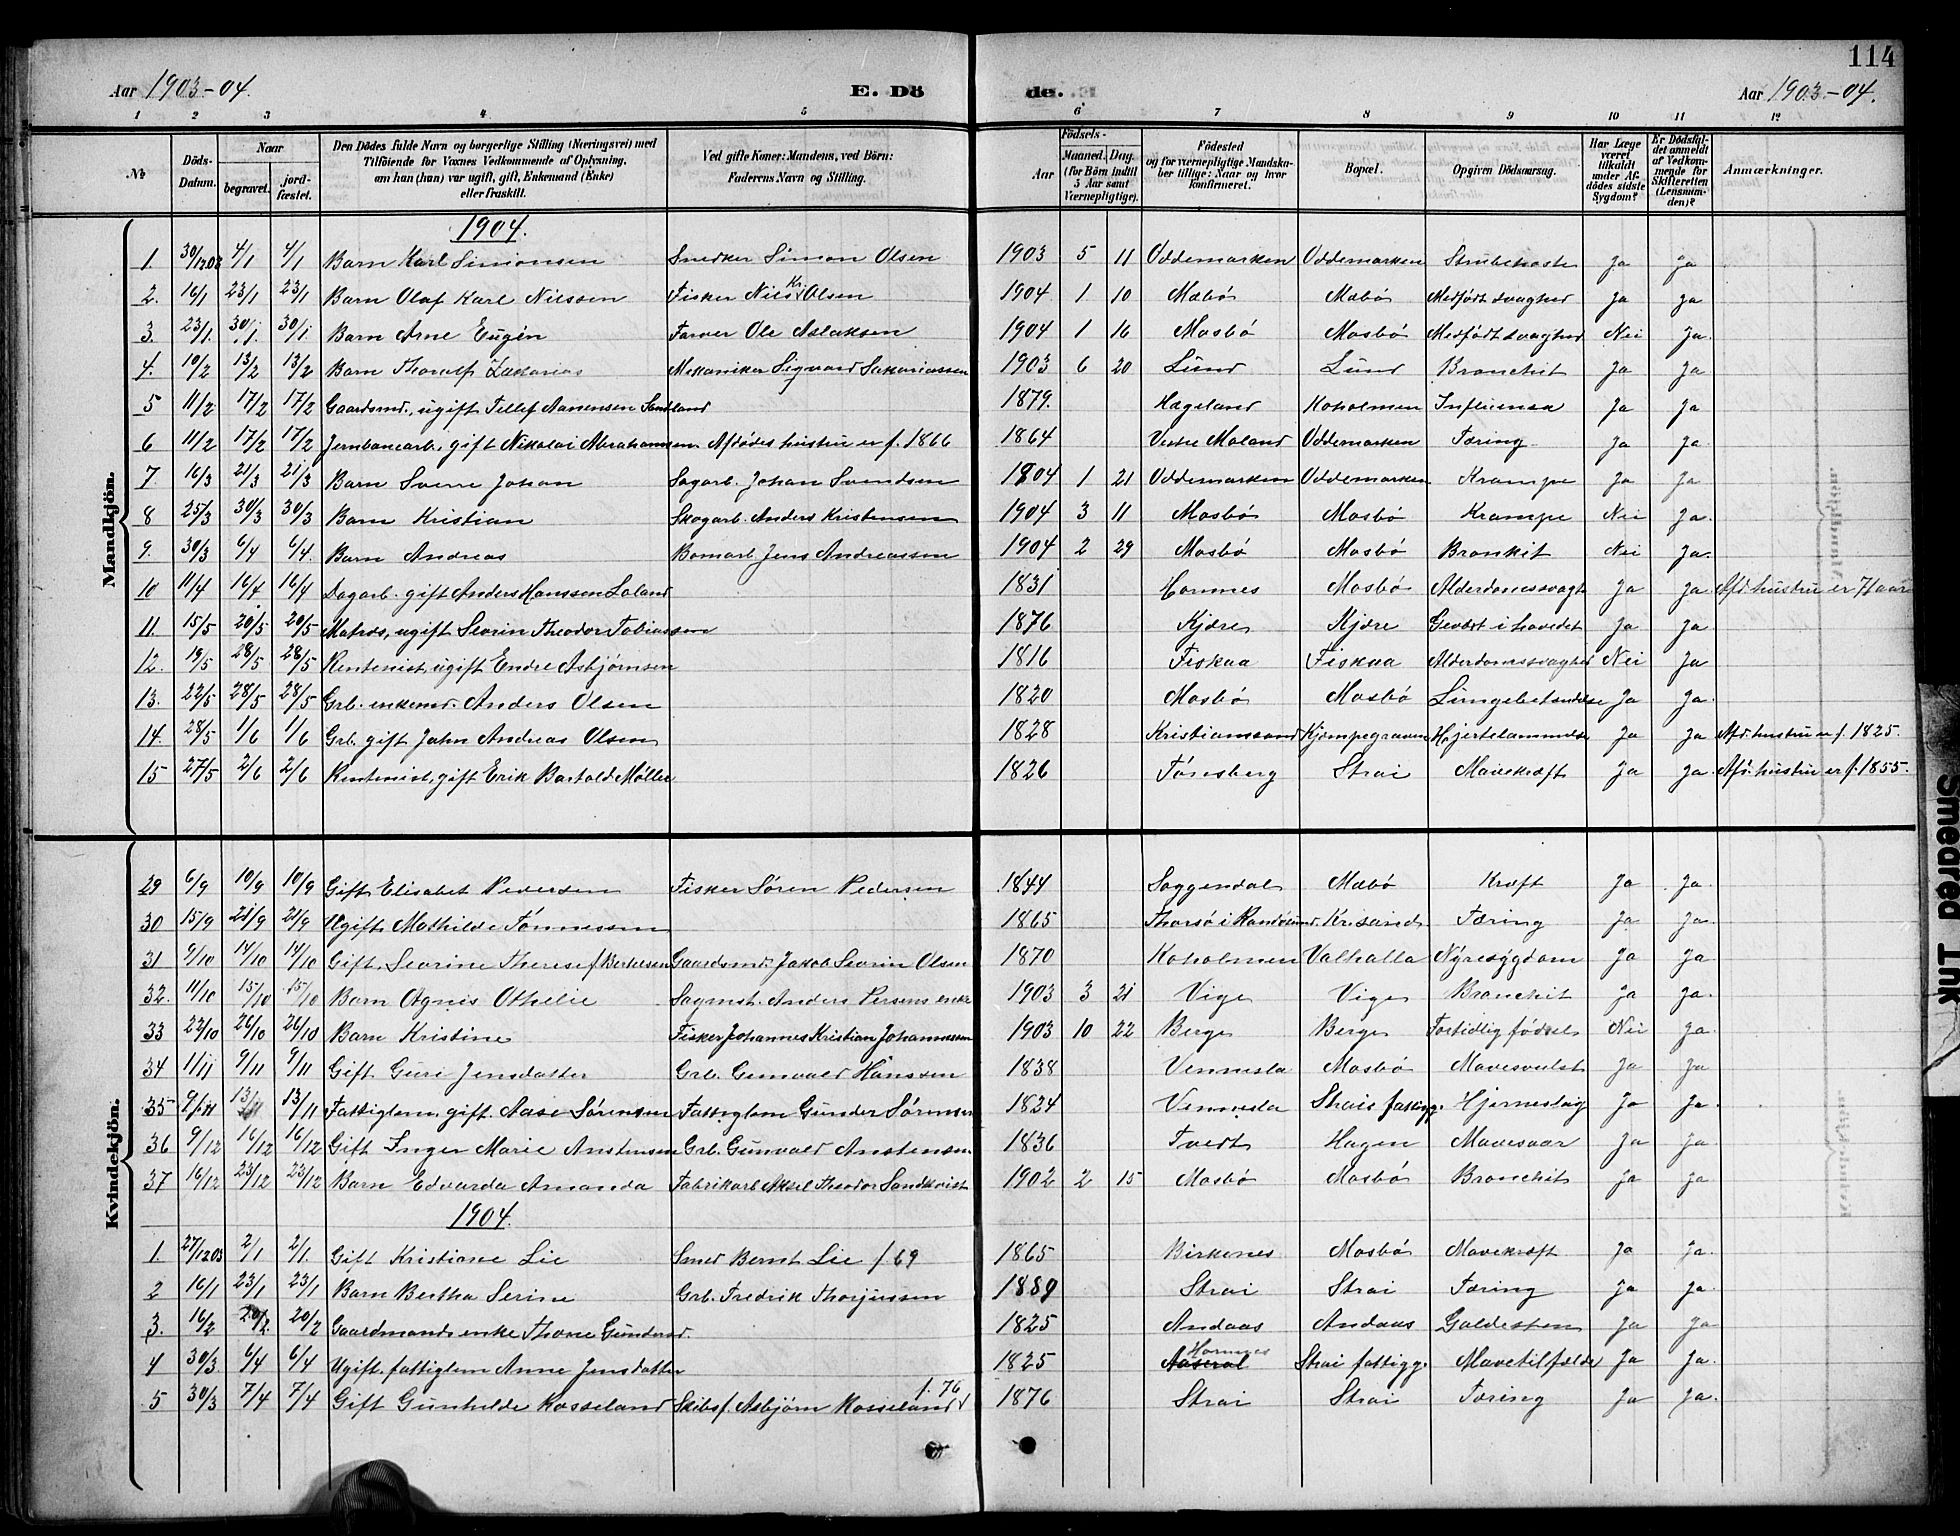 114
Aar 1903-04. E. Dö de. Aar 1903-04.
1 2 3 4 5 6 7 8 9 10 11 12
№ Döds-Datum. Naar begravet. jordfæstet. Den Dödes fulde Navn og borgerlige Stilling (Næringsvei) med Tilföiende for Voxnes Vedkommende af Oplysning, om han (hun) var ugift, gift, Enkemand (Enke) eller fraskilt. Ved gifte Koner: Mandens, ved Börn: Faderens Navn og Stilling. Födsels- Aar Maaned. Dag. (for Börn indtil 5 Aar samt Værnepligtige). Födested og for værnepligtige Mandskaber tillige: Naar og hvor konfirmeret. Bopæl. Opgiven Dödsaarsag. Har Læge været tilkaldt under Afdödes sidste Sygdom? Er Dödsfaldet anmeldt af Vedkommende for Skifteretten (Lensmanden)? Anmærkninger.
Mandkjön.
1904.
1. 30/12.03 4/1 4/1 Barn Karl Simonsen Snedker Simon Olsen 1903 5 11 Oddemarken Oddemarken Strubehoste Ja Ja
2. 16/1 23/1 23/1 Barn Olaf Karl Nilssen Fisker Nils Kr. Olsen 1904 1 10 Mæbø Mæbø Medfødt svaghed Ja Ja
3. 23/1. 30/1. 30/1. Barn Arne Eugén Farver Ole Aslaksen 1904 1 16 Mosbø Mosbø Medfødt svaghed Nei Ja.
4. 10/2 13/2 13/2 Barn Thoralf Zakarias Mekaniker Sigvard Sakariassen 1903 6 20 Lund Lund Bronchit Ja Ja
5 11/2 17/2 17/2 Gaardsmd., ugift Tellef Aanensen Sandland 1879. Hægeland Koholmen Influensa Ja Ja
6 11/2 17/2 17/2 Jernbanearb., gift Nikolai Abrahamsen Afdødes hustru er f. 1866 1864 Vestre Moland Oddemarken Tæring. Ja Ja
7 16/3 21/3 21/3 Barn Sverre Johan Sagarb. Johan Svendsen 1904 1 21 Oddemarken Oddemarken Krampe Ja Ja
8 25/3 30/3 30/3 Barn Kristian Skogarb. Anders Kristensen 1904 3 11 Mosbø Mosbø Krampe Nei Ja.
9. 30/3 6/4 6/4. Barn Andreas Bomarb. Jens Andreassen 1904 2 29 Mosbø Mosbø Bronkit Nei Ja.
10 11/4 16/4 16/4 Dagarb. gift Anders Hanssen Loland 1831 Hornnes Mosbø Alderdomssvagh. Ja Ja. Afd. hustru er 71 aar
11. 15/5 20/5 20/5 Matros, ugift Severin Theodor Tobiassen 1876 Kjære Kjære Gevæxt i hovedet Ja Ja
12. 19/5 28/5 28/5 Rentenist, ugift Endre Asbjørnsen 1816 Fiskaa Fiskaa Alderdomssvaghed Nei Ja
13. 22/5 28/5 28/5 Grb. enkemd. Anders Olsen 1820 Mosbø Mosbø Lungebetændelse Ja Ja.
14. 28/5 1/6 1/6 Grb. gift John Andreas Olsen 1828 Kristianssand Kjempegraven Hjertelammelse Ja Ja Afd. hustru er f. 1825.
15 27/5 2/6 2/6 Rentenist, gift Erik Bartold Møller 1826 Tønsberg Strai Mavekræft Ja Ja. Afd. hustru er f. 1855.
Kvindekjön.
29 6/9 10/9 10/9 Gift Elisabet Pedersen Fisker Søren Pedersen 1844 Soggendal Mæbø Kræft Ja Ja.
30 15/9 21/9 21/9 Ugift Mathilde Tønnessen 1865 Tharsø i Randøsund. Krisand. Tæring Ja Ja.
31 9/10 14/10 14/10 Gift Severine Therese f. Bertesen Gaardsmd. Jakob Severin Olsen 1870 Koholmen Valhalla Nyresygdom Ja Ja
32. 11/10 15/10 15/10 Barn Agnis Othelie Sagmst. Anders Persens enke 1903 3 21 Vige Vige Bronchit Ja Ja.
33 22/10 26/10 26/10 Barn Kristine Fisker Johannes Kristian Johannessen 1903 10 22 Berge Berge Fortidlig fødsel Nei Ja
34 11/11 9/11 9/11 Gift Guri Jensdatter Grb. Gunvald Hanssen 1838 Vennesla Mosbø Mavesvulst Ja Ja
35 9/11 13/11 13/11 Fattiglem, gift Aase Sørensen Fattiglem Gunder Sørensen 1824 Vennesla Strais fattigg. Hjerneslag Ja Ja.
36 9/12 16/12 16/12 Gift Inger Marie Anstensen Grb. Gunvald Anstensen. 1836 Tvedt Hagen Mavesaar Ja Ja
37 16/12 23/12 23/12 Barn Edvarda Amanda Fabrikarb. Aksel Theodor Sandkvist 1902 2 15 Mosbø Mosbø Bronchit Ja Ja
1904.
1. 27/12 03 2/1 2/1. Gift Kristiane Lie Smed Bernt Lie f 69 1865 Birkenes Mosbø Mavekræft Ja Ja.
2 16/1 23/1 23/1 Barn Bertha Serine Grb. Fredrik Thorjussen 1889 Strai Strai Tæring Ja Ja
3. 16/2 20/2. 20/2 Gaardmands enke Thone Gundersd. 1825 Andaas Andaas Galdesten Ja Ja
4 30/3 6/4 6/4 Ugift, fattiglem Anne Jensdatter 1825 Aaseral Hornnes Strai fattigg. Mavetilfælde Ja Ja
5 30/3 7/4 7/4 Gift Gunhilde Kosseland Skibsf. Asbjørn Kosseland f. 76 1876 Strai Strai Tæring Ja Ja.
Smeared Ink